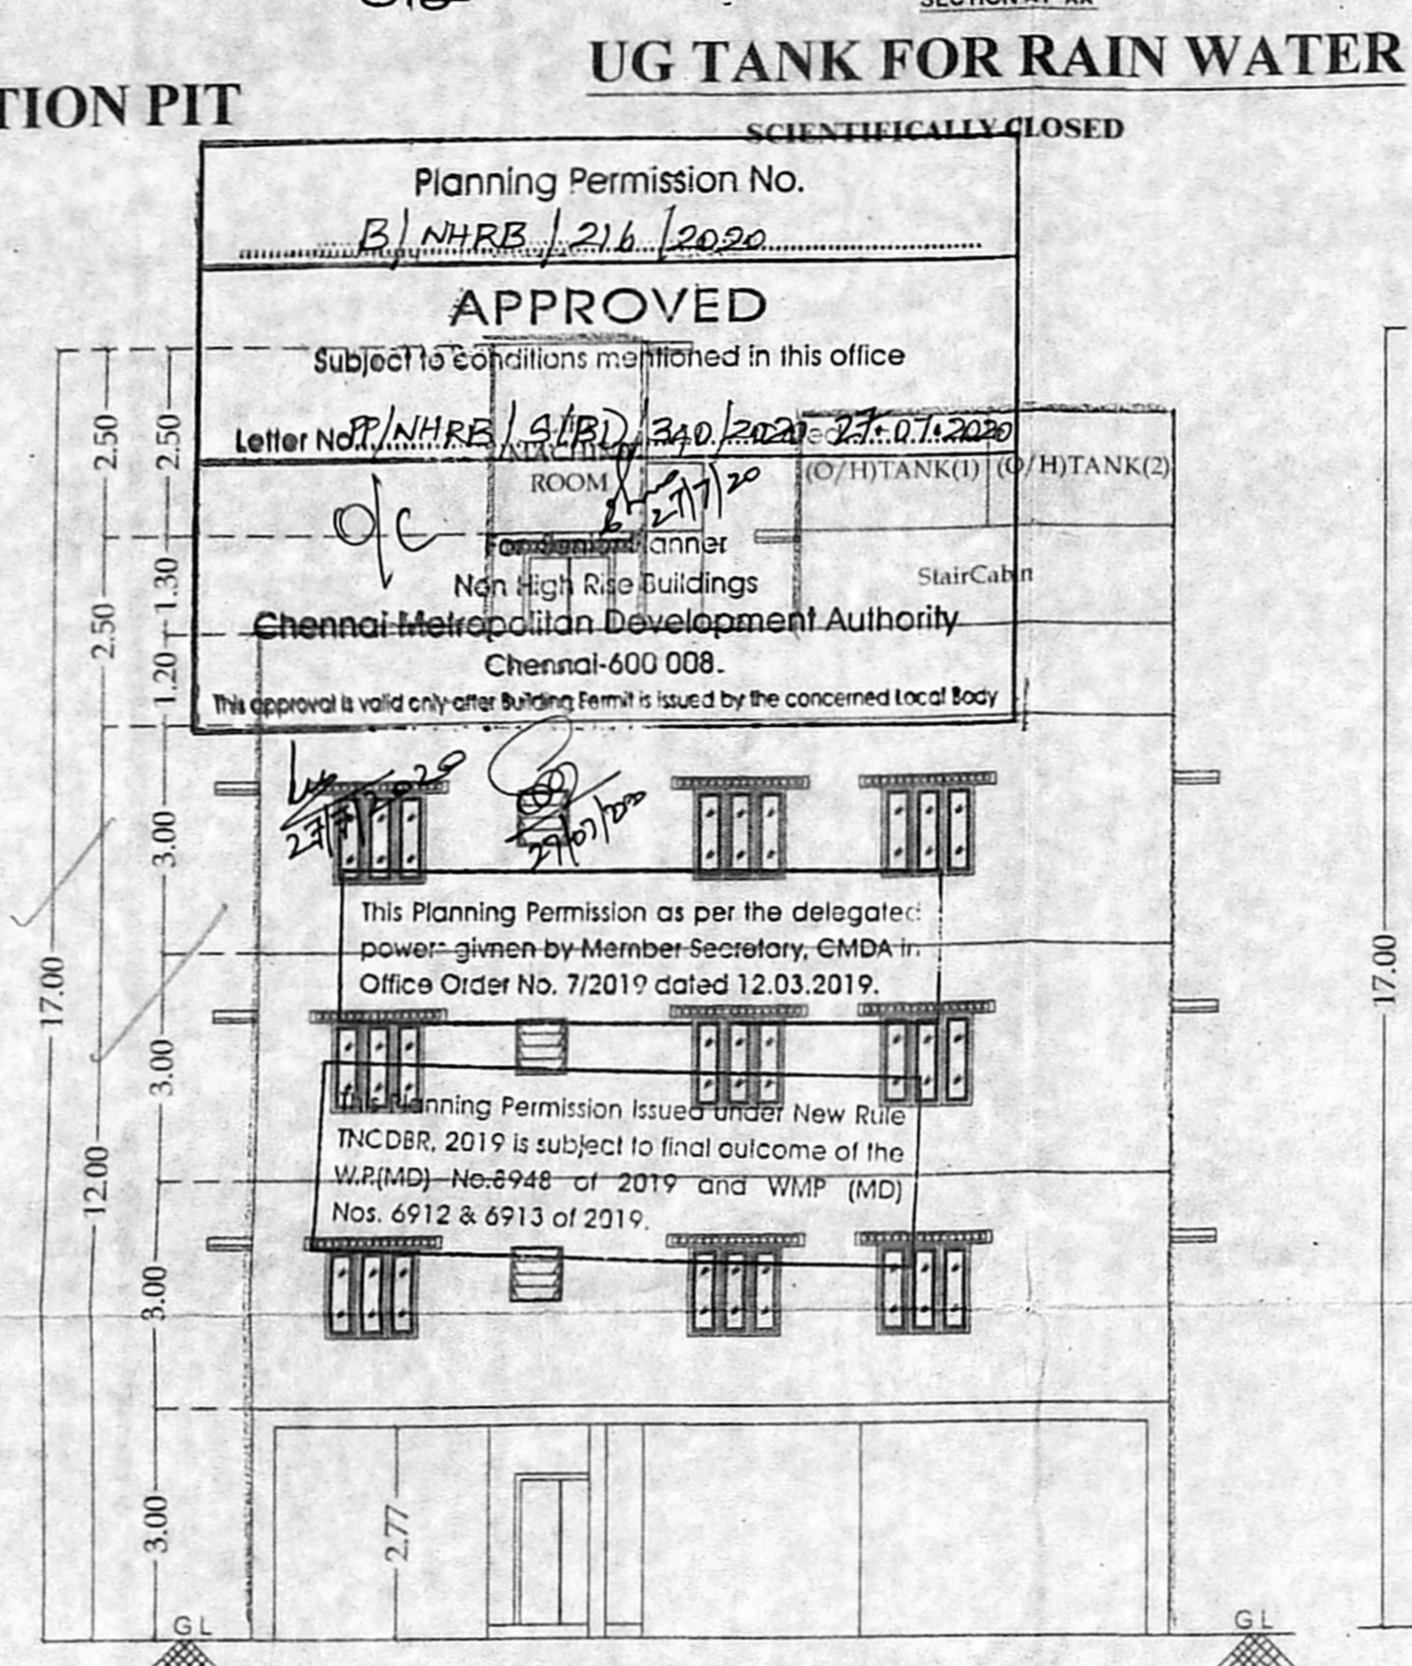 SECTION AT XX
UG TANK FOR RAIN WATER
TION PIT
SCIENTIFICALLY CLOSED
Planning Permission No.
B/NHRB/216/2020
APPROVED
Subject to conditions mentioned in this office
Letter No. PP/NHRB/S(BD)/340/2020 27.07.2020
MACHINE
ROOM
(O/H)TANK(1) (O/H)TANK(2)
27/7/20
O/C
For Senior Planner
Non High Rise Buildings
StairCabin
Chennai Metropolitan Development Authority
Chennai-600 008.
This approval is valid only after Building Permit is issued by the concerned Local Body
27/7/2020
27/07/2020
This Planning Permission as per the delegated
powers givnen by Member Secretary, CMDA in
Office Order No. 7/2019 dated 12.03.2019.
This Planning Permission Issued under New Rule
TNCDBR, 2019 is subject to final outcome of the
W.P.(MD) No.8948 of 2019 and WMP (MD)
Nos. 6912 & 6913 of 2019.
2.50
2.50
2.50
1.30
1.20
3.00
17.00
17.00
3.00
12.00
3.00
3.00
2.77
GL
GL